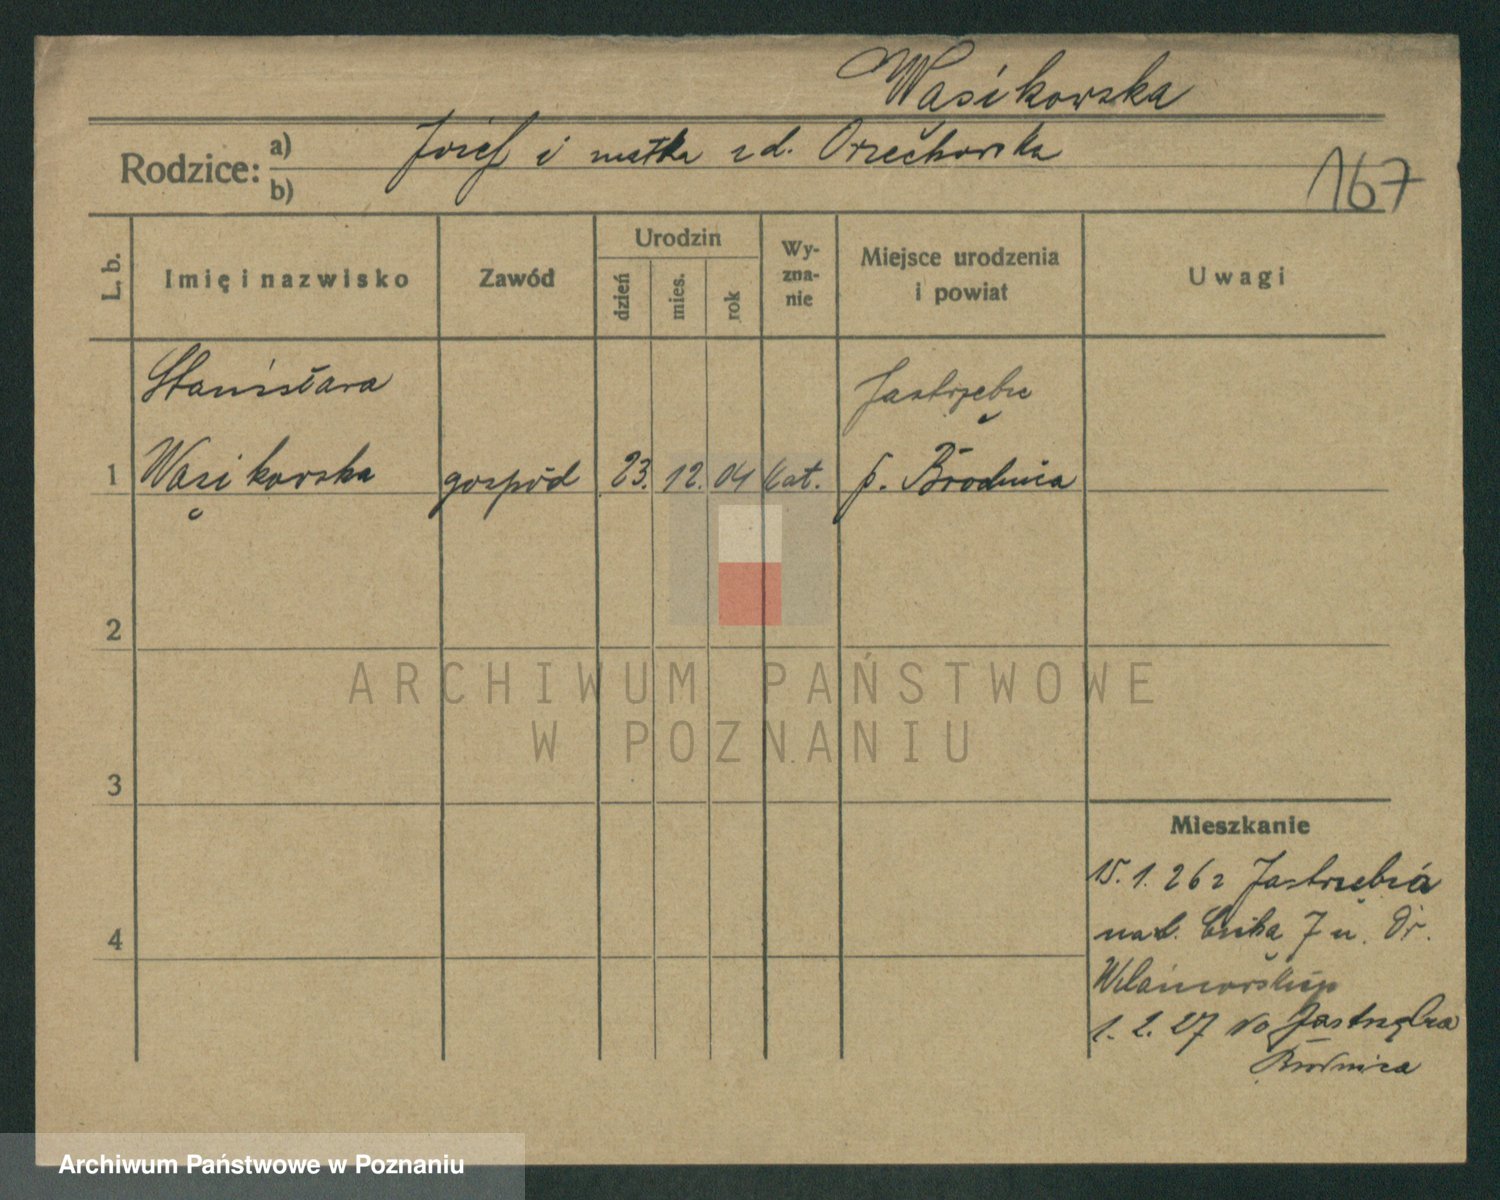 Wasikowska
Rodzice: a) Józef i matka z d. Orzechowska
b)
167
L. b.
Imię i nazwisko
Zawód
Urodzin
dzień
mies.
rok
Wy-
zna-
nie
Miejsce urodzenia
i powiat
Uwagi
Stanisława
Jastrzębie
1 Wąsikowska gospód 23. 12. 04 kat. p. Brodnica
2
ARCHIWUM PAŃSTWOWE
W POZNANIU
3
Mieszkanie
15. 1. 26 z Jastrzębia
4
7 u. Dr.
1. 2. 27 do Jastrzębia
Brodnica
Archiwum Państwowe w Poznaniu